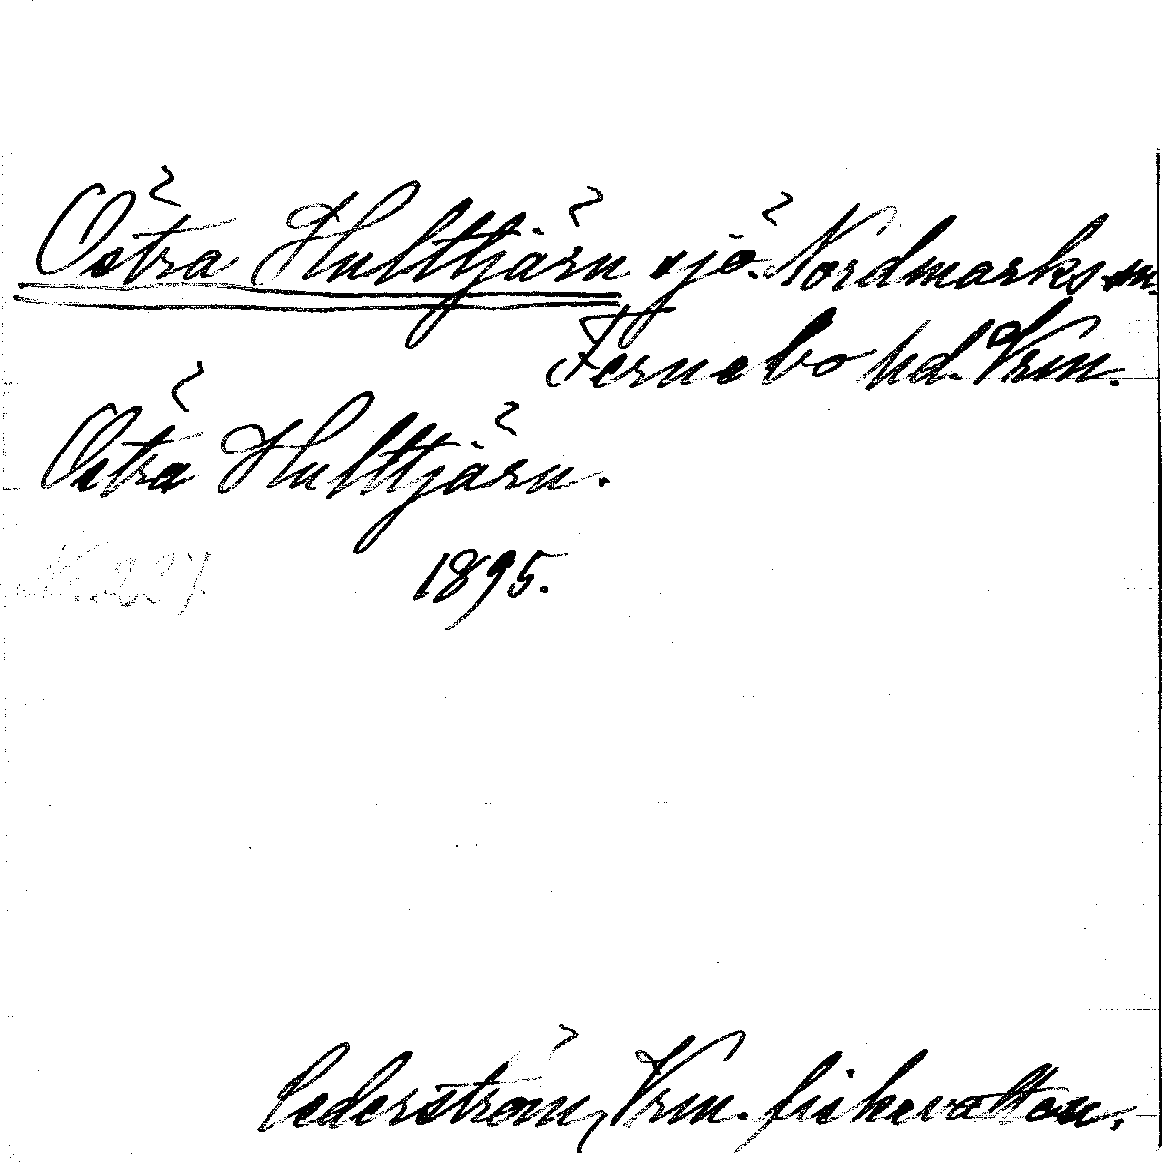 Östra Hulttjärn sjö. Nordmarks sn.
Fernebo hd. Vrm.
Östra Hulttjärn.
N. 227. 1895.
Cederström, Vrm. fiskevatten.